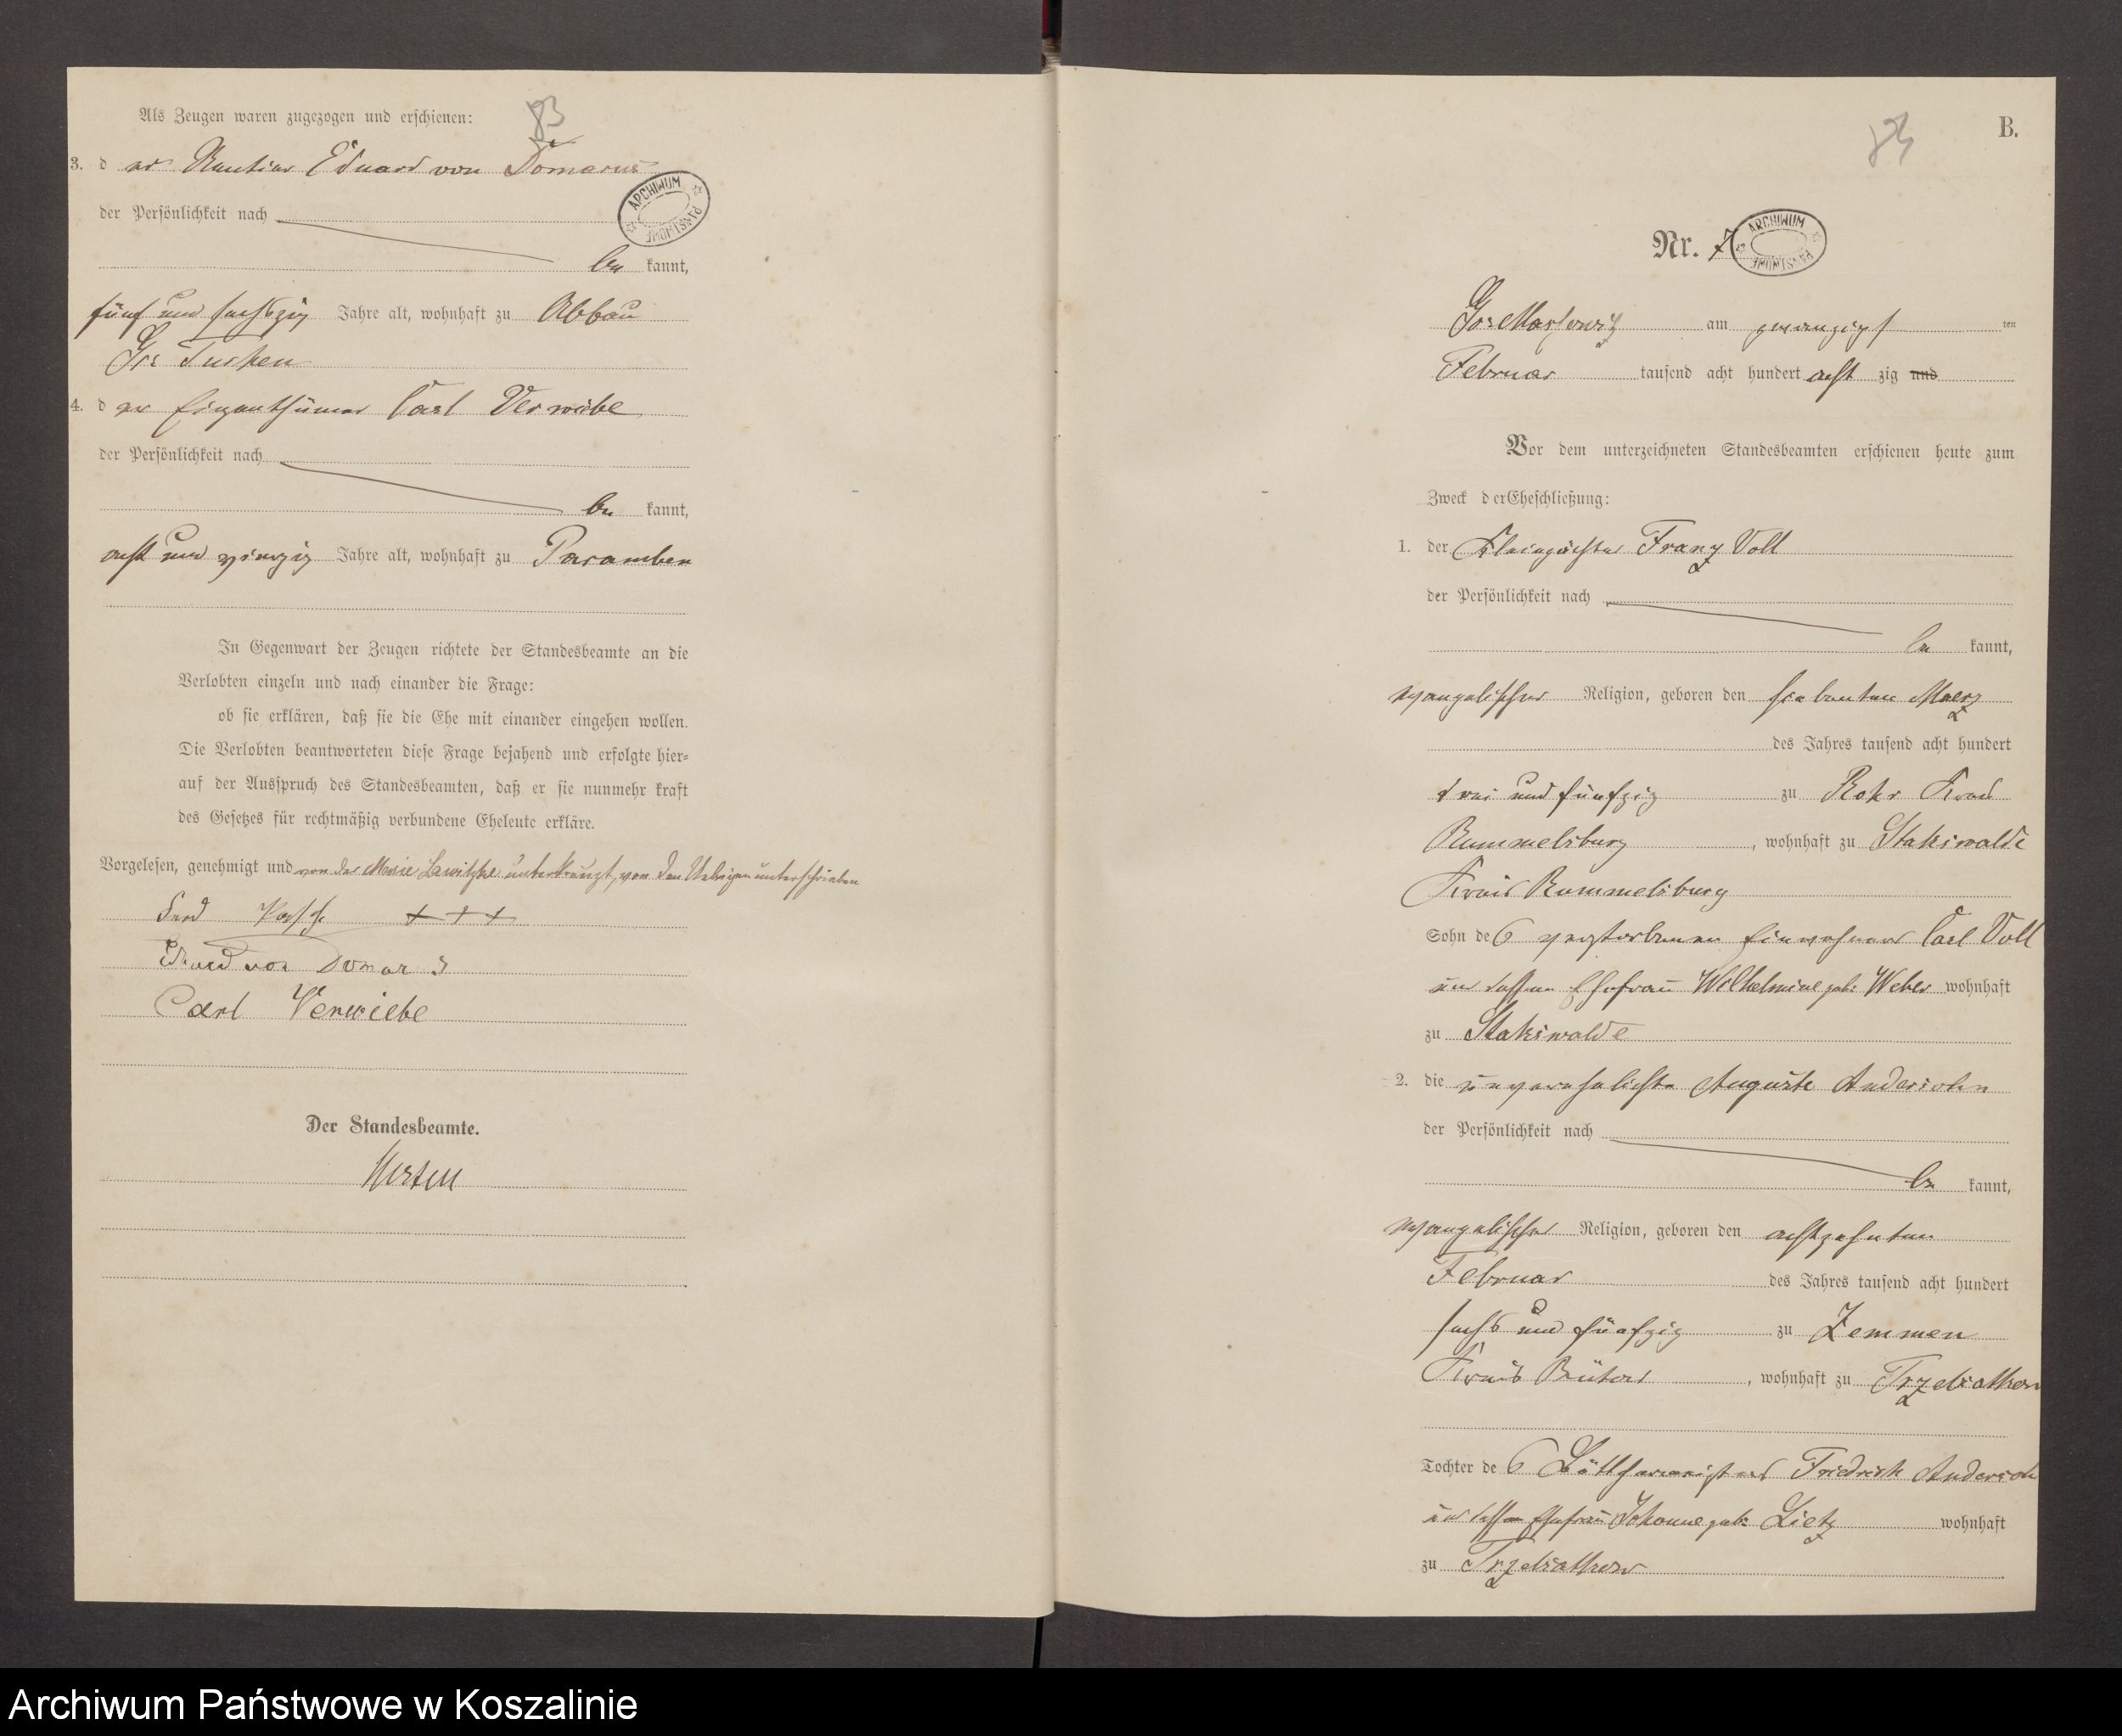 83
Als Zeugen waren zugezogen und erschienen:
3. d er Rentier Eduard von Domarus
ARCHIWUM PAŃSTWOWE
der Persönlichkeit nach
be kannt,
fünf und sechszig Jahre alt, wohnhaft zu Abbau
Gr: Tuchen
4. d er Eigenthümer Carl Verwiebe
der Persönlichkeit nach
be kannt,
acht und vierzig Jahre alt, wohnhaft zu Zaramben
In Gegenwart der Zeugen richtete der Standesbeamte an die
Verlobten einzeln und nach einander die Frage:
ob sie erklären, daß sie die Ehe mit einander eingehen wollen.
Die Verlobten beantworteten diese Frage bejahend und erfolgte hier-
auf der Ausspruch des Standesbeamten, daß er sie nunmehr kraft
des Gesetzes für rechtmäßig verbundene Eheleute erkläre.
Vorgelesen, genehmigt und von der Marie unterkreuzt, von den Uebrigen unterschrieben
Ferd +++
Eduard von Domarus
Carl Verwiebe
Der Standesbeamte.
B.
Nr. 7
ARCHIWUM PAŃSTWOWE
Gr: Massowitz am zwanzigst ten
Februar tausend acht hundert acht zig und
Vor dem unterzeichneten Standesbeamten erschienen heute zum
Zweck der Eheschließung:
1. der Franz Voll
der Persönlichkeit nach
be kannt,
evangelischer Religion, geboren den siebenten Maerz
des Jahres tausend acht hundert
drei und fünfzig zu Rohr Kreis
Rummelsburg, wohnhaft zu
Kreis Rummelsburg
Sohn des verstorbenen Einwohners Carl Voll
und dessen Ehefrau Wilhelmine geb: Weber wohnhaft
zu
2. die unverehelichte Auguste Andersohn
der Persönlichkeit nach
be kannt,
evangelischer Religion, geboren den achtzehnten
Februar des Jahres tausend acht hundert
sechs und fünfzig zu Zemmen
Kreis Bütow, wohnhaft zu Trzebiatkow
Tochter des Böttchermeisters Friedrich Andersohn
und dessen Ehefrau Johanne geb: Lietz wohnhaft
zu Trzebiatkow
Archiwum Państwowe w Koszalinie